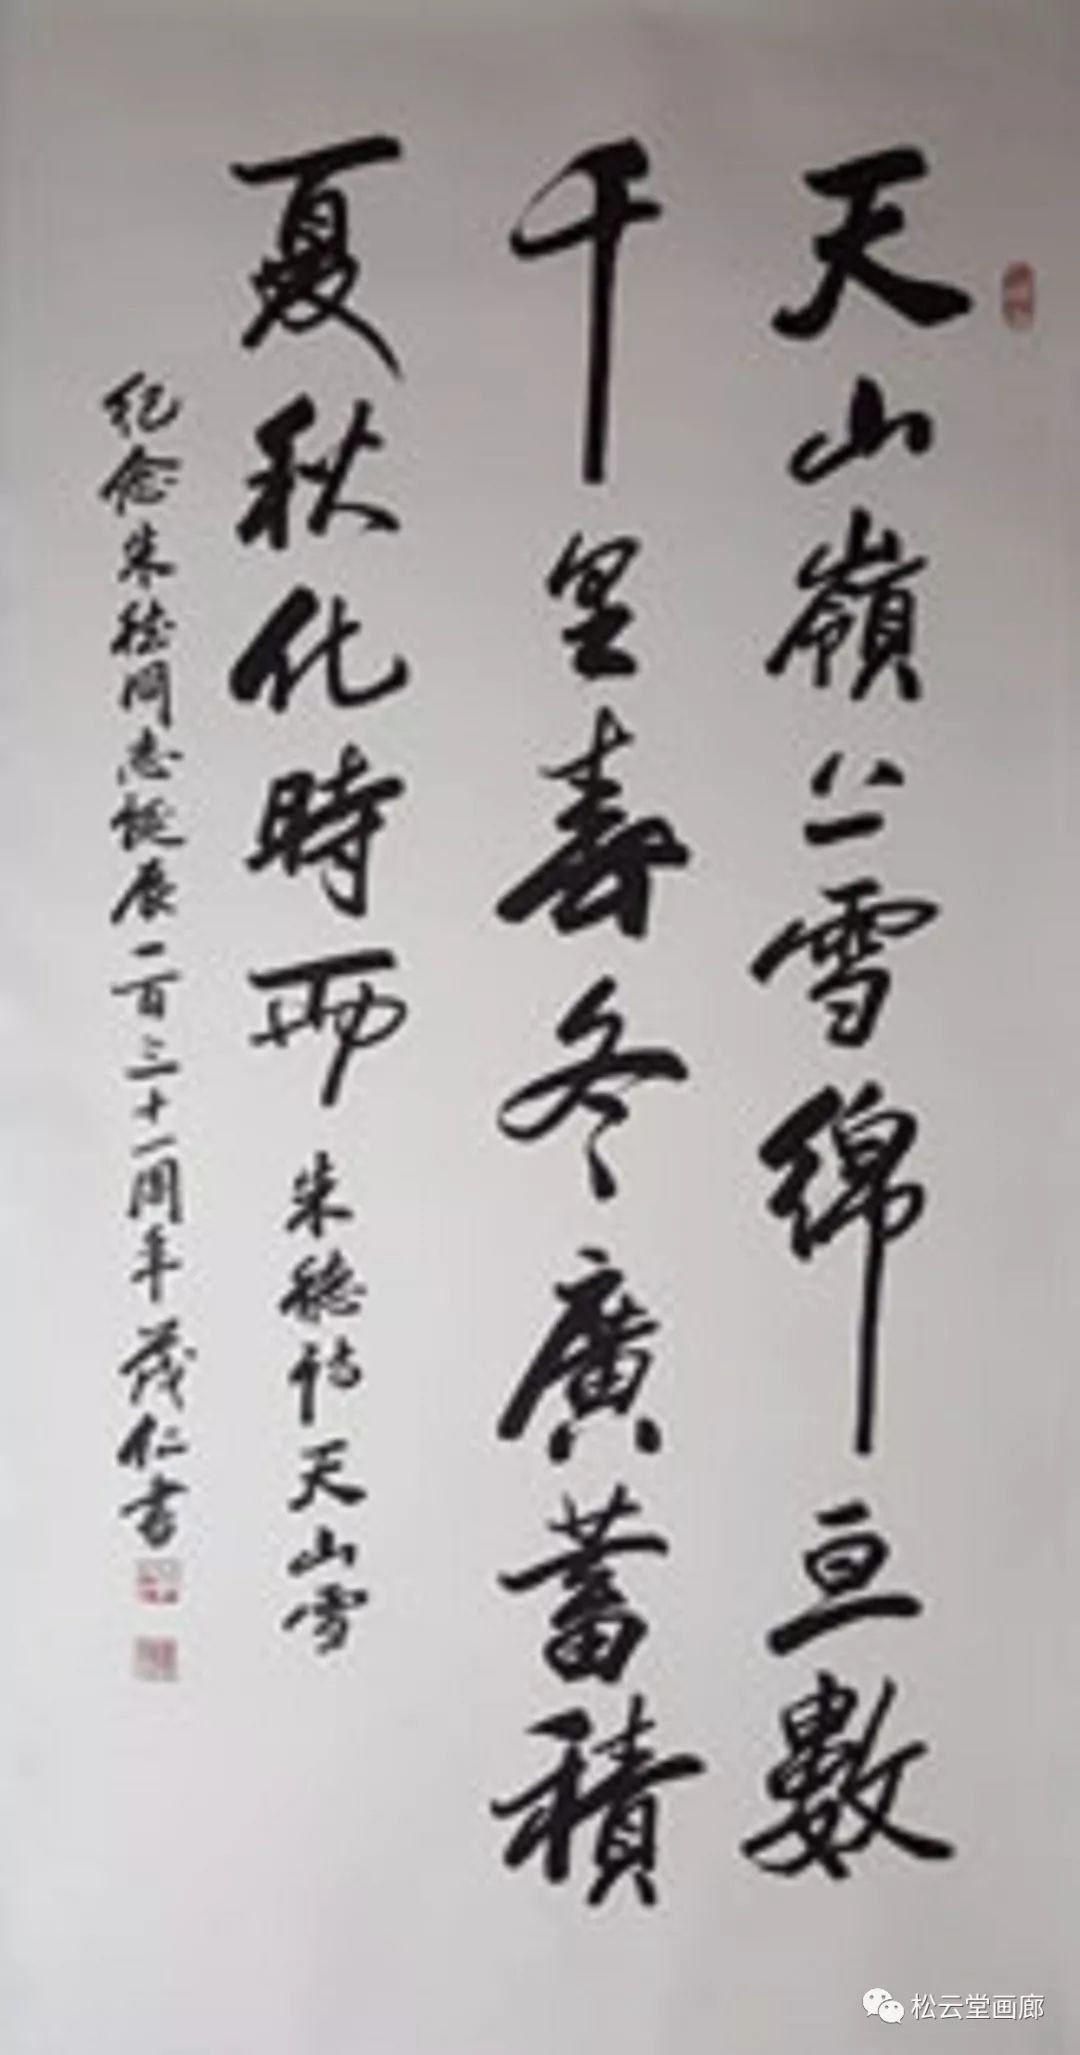 天山嶺上雪綿亘數
千里春冬廣蓄積
夏秋化時雨 朱德詩天山雪
纪念朱德同志诞辰一百三十一周年 茂仁书
松云堂画廊